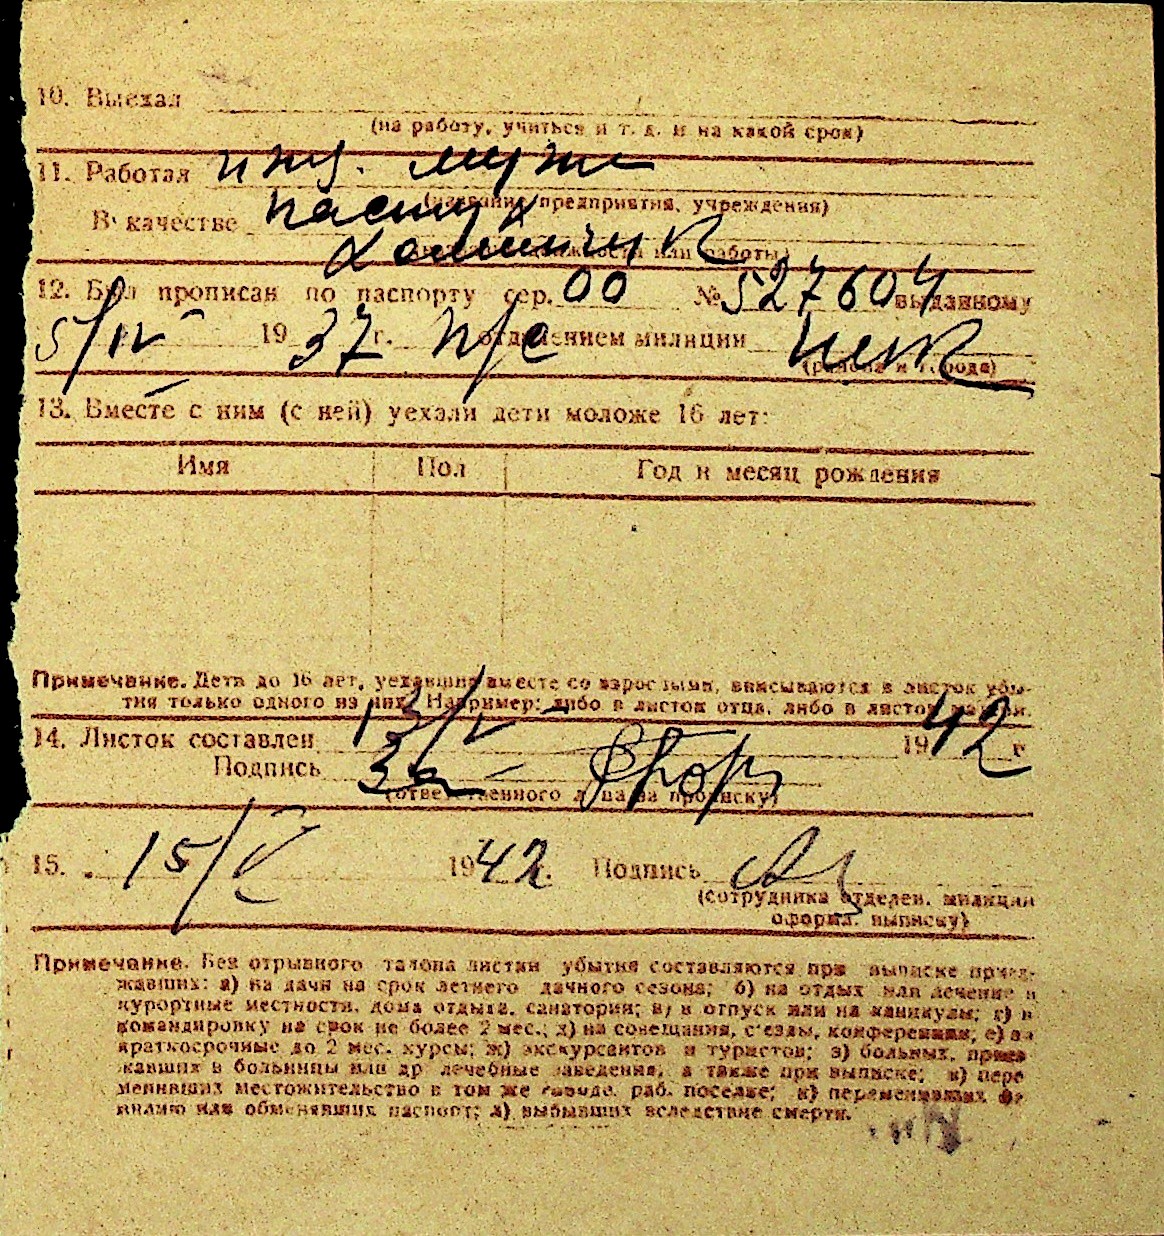 10. Выехал
(на работу, учиться и т. д. и на какой срок)
11. Работая ижд. мужа
(название предприятия, учреждения)
В качестве пастух
должности или работы)
12. Был прописан по паспорту сер. 00 № 527604 выданному
5/IV 1937 г. п/с отделением милиции
(района и города)
13. Вместе с ним (с ней) уехали дети моложе 16 лет:
Имя Пол Год и месяц рождения
Примечание. Дети до 16 лет, уехавшие вместе со взрослыми, вписываются в листок убы-
тия только одного из них. Например: либо в листок отца, либо в листок матери.
14. Листок составлен 13/V 1942 г
Подпись За
(ответственного лица за прописку)
15. 15/V 1942 г. Подпись
(сотрудника отделен. милиции
оформ. выписку)
Примечание. Без отрывного талона листки убытия составляются при выписке приез-
жавших: а) на дачи на срок летнего дачного сезона; б) на отдых или лечение в
курортные местности, дома отдыха, санатории; в) в отпуск или на каникулы; г) в
командировку на срок не более 2 мес.; д) на совещания, с'езды, конференции; е) на
краткосрочные до 2 мес. курсы; ж) экскурсантов и туристов; з) больных, приез
жавших в больницы или др лечебные заведения, а также при выписке; и) пере
менивших местожительство в том же городе, раб. поселке; к) переменивших фа
милию или обменявших паспорт; л) выбывших вследствие смерти.